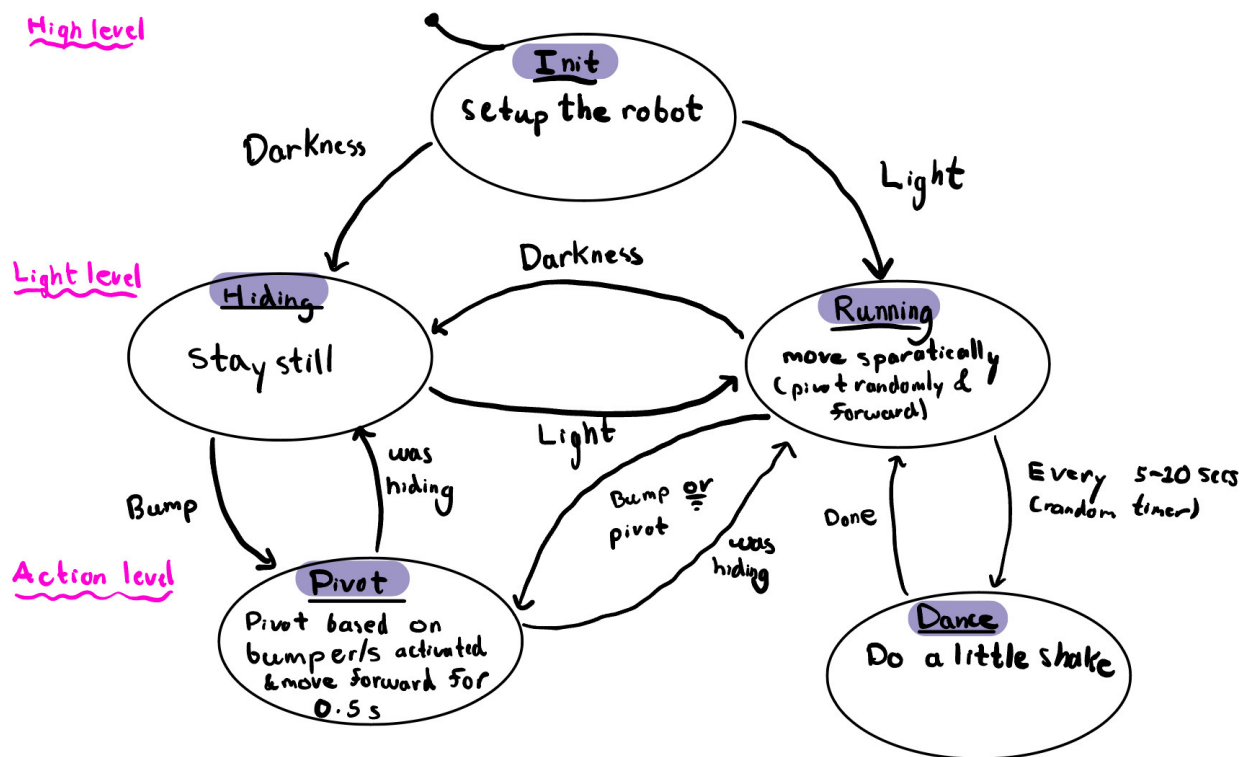 High level
Init
setup the robot
Darkness
Light
Light level
Darkness
Hiding
Stay still
Running
move sparatically
(pivot randomly &
forward)
Light
Bump
was
hiding
Bump or
pivot
was
hiding
Done
Every 5-10 secs
(random timer)
Action level
Pivot
Pivot based on
bumper/s activated
& move forward for
0.5s
Dance
Do a little shake